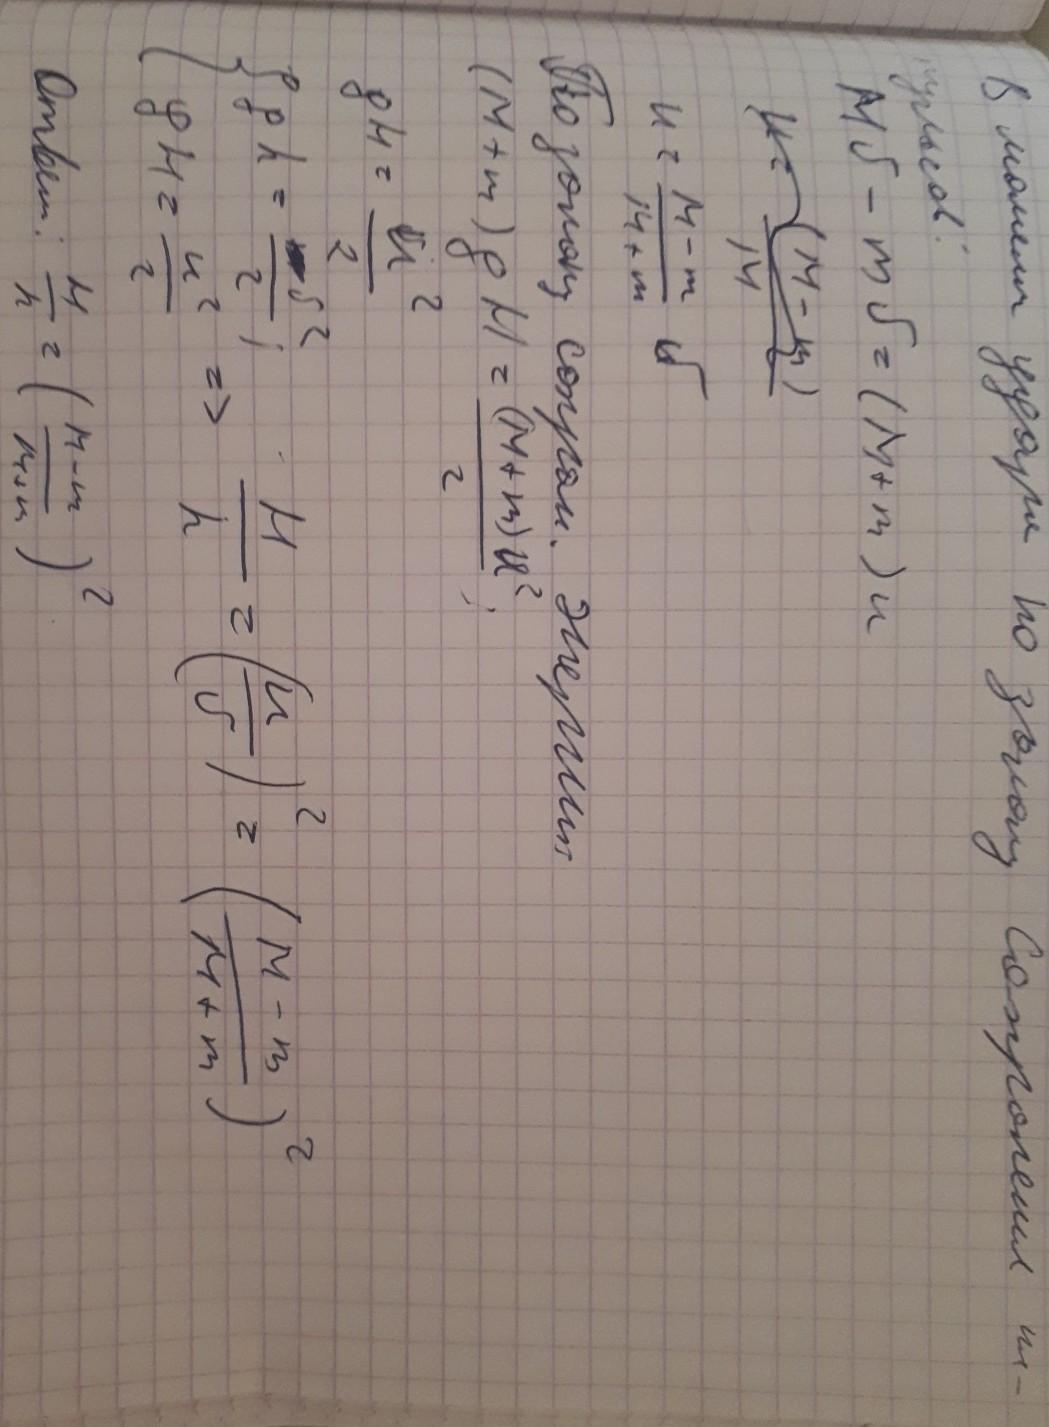 В момент удара по закону сохранения им-
пульсов:
Mv - mv = (M+m)u
u = (M-m)/M
u = (M-m)/(M+m) v
По закону сохран. энергии
(M+m)gH = (M+m)u²/2 ;
gH = u²/2
{ gh = v²/2 ;
gH = u²/2 => H/h = (u/v)² = ((M-m)/(M+m))²
Ответ: H/h = ((M-m)/(M+m))²